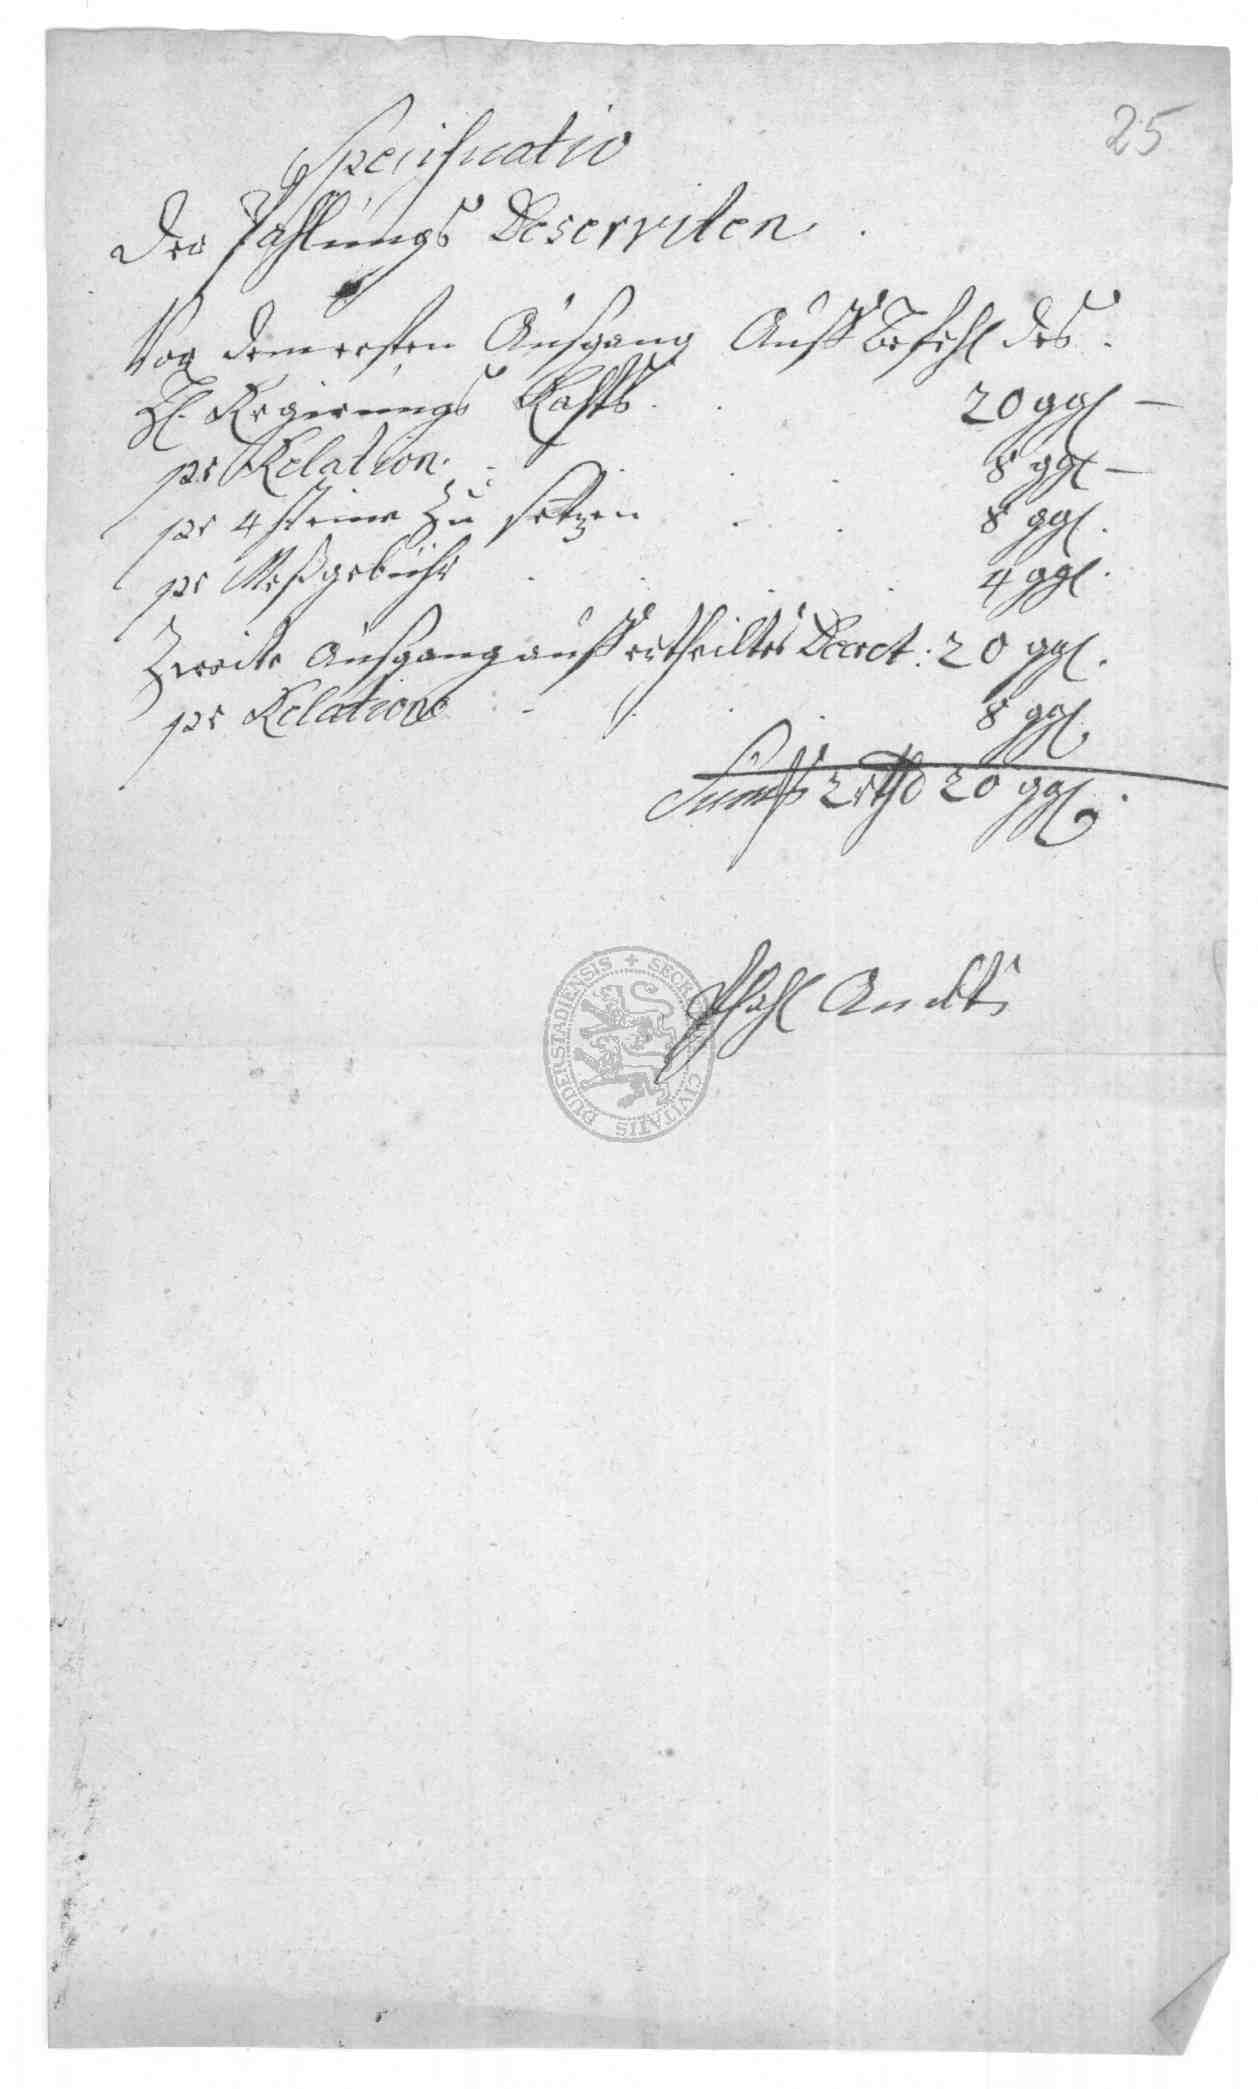 25
Specificatio
der Zahlungs Deserviten
Vor dem ersten Ausgang Auff Befehl des
H. Regierungs Rahts 20 ggl
pr Relation 8 ggl
pr 4 steine zu setzen 8 ggl.
pr Meßgebühr 4 ggl.
Zweite Ausgang auff ertheiltes Decret: 20 ggl.
pr Relatione 8 ggl
Summa 2 rthl 20 ggl.
SECRE CIVITATIS DUDERSTADIENSIS